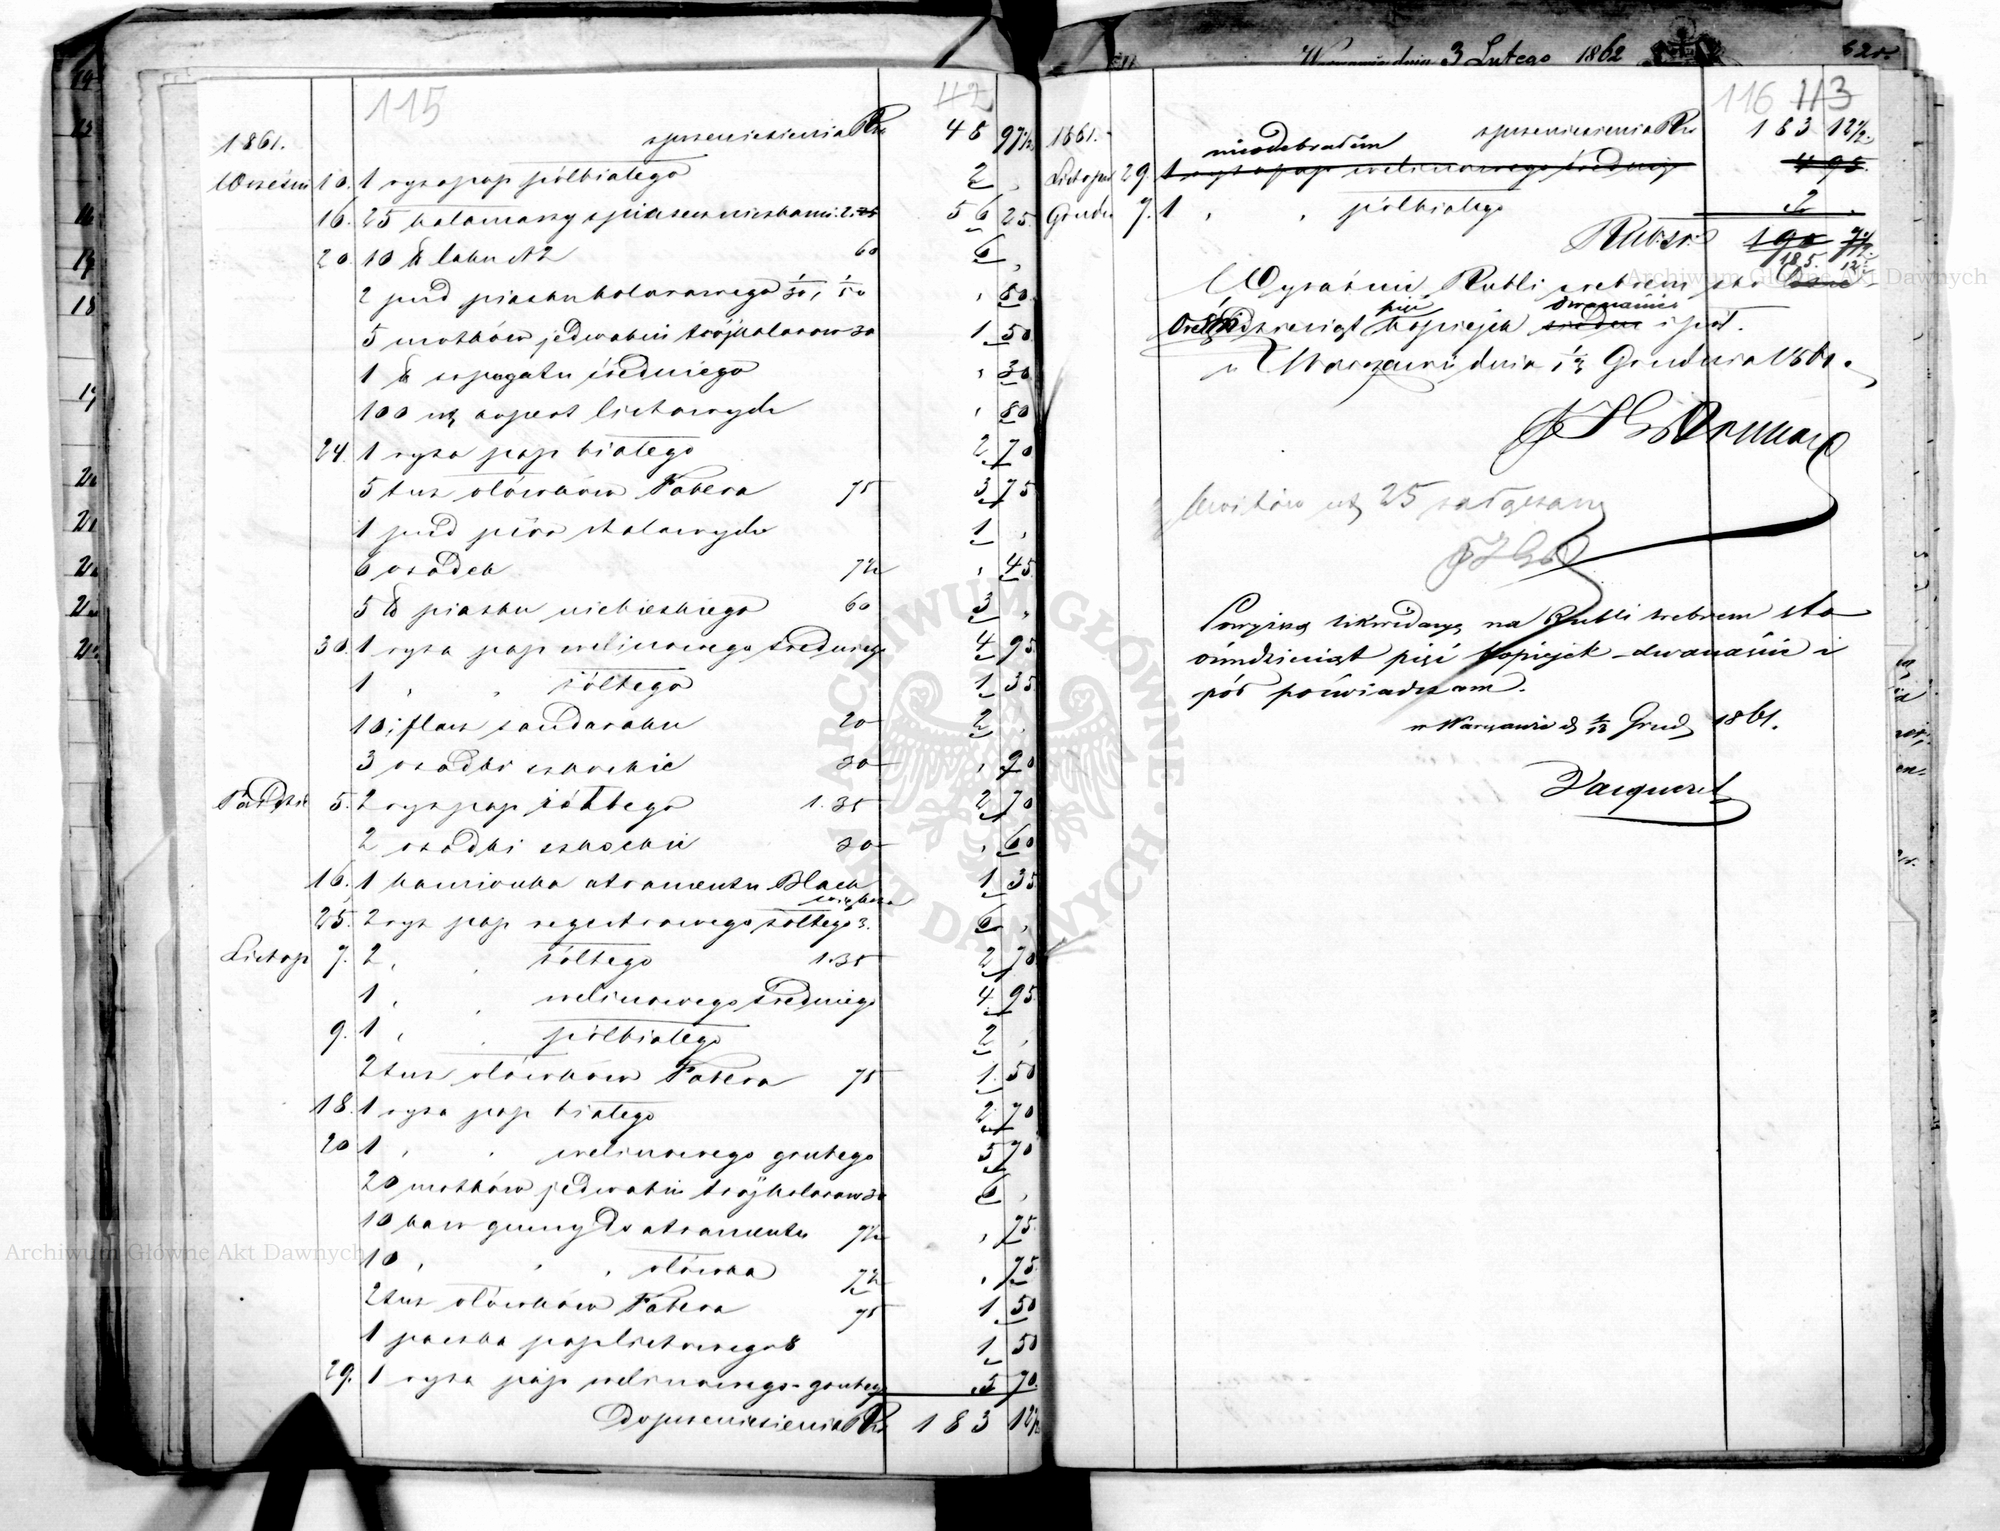 115
1861. zprzeniesienia Rs 45 97½
Wrzesień 10. 1 ryza pap półbiałego 2 "
16. 25 kałamarzy z piaseczniczkami 2.25 56 25
20. 10 ℔ laku N2 60 6 "
2 pud piasku kolorowego 30, 50 " 80
5 motków jedwabiu trójkolorow 30 1 50
1 ℔ szpagatu średniego " 30
100 szt kopert listowych " 80
24. 1 ryza pap białego 2 70
5 tuz ołówków Fabera 75 3 75
1 pud piór stalowych 1 "
6 osadek 7½ " 45
5 ℔ piasku niebieskiego 60 3 "
30. 1 ryza pap welinowego średniego 4 95
1 " " żółtego 1 35
10 flasz sandaraku 20 2 "
3 osadki szkockie 30 " 90
Paździe 5. 2 ryz pap żółtego 1.35 2 70
2 osadki szkockie 30 " 60
16. 1 kamionka atramentu Black 1 35
większa
25. 2 ryz pap regestrowego żółtego 3. 6 "
Listop 7. 2 " " żółtego 1.35 2 70
1 " " welinowego średniego 4 95
9. 1 " " półbiałego 2 "
2 tuz ołówków Fabera 75 1 50
18. 1 ryza pap białego 2 70
20 1 " " welinowego grubego 5 70
20 motków jedwabiu trójkolorow 30 6 "
10 kaw gumy do atramentu 7½ " 75
10 " " " ołówka 7½ " 75
2 tuz ołówków Fabera 75 1 50
1 paczka pap listowego 8 1 50
29. 1 ryza pap welinowego grubego 5 70
Do przeniesienia Rs 183 12½
Warszawa dnia 3 Lutego 1862
116 113
1861. zprzeniesienia Rs 183 12½
nieodebrałem
Listopad 29. 1 ryza pap welinowego średnieg 4 95.
Grudz 7. 1 " " półbiałego 2 "
Rub.sr. 190 7½
185. 12½
Wyraźnie Rubli srebrem sto
pięć dwanaście
Ośmdziesiąt kopiejek siedm i pół.
w Warszawie dnia 1/13 Grudnia 1861.
Kwitów szt 25 załączam
Powyższą likwidacyę na Rubli srebrem sto
ośmdziesiąt pięć kopiejek dwanaście i
pół poświadczam.
w Warszawie d 1/13 Grud 1861.
Vacqueret
ARCHIWUM GŁÓWNE AKT DAWNYCH
Archiwum Główne Akt Dawnych
Archiwum Główne Akt Dawnych